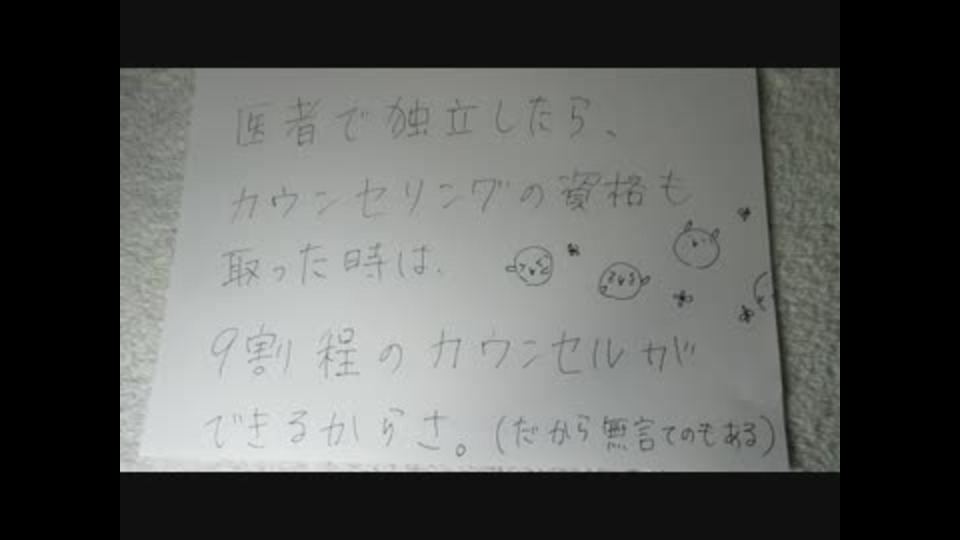 医者で独立したら、
カウンセリングの資格も
取った時は、
9割程のカウンセルが
できるからさ。(だから無言てのもある)